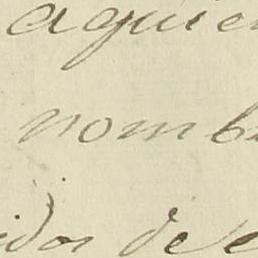 aquie
nomb
idos de e